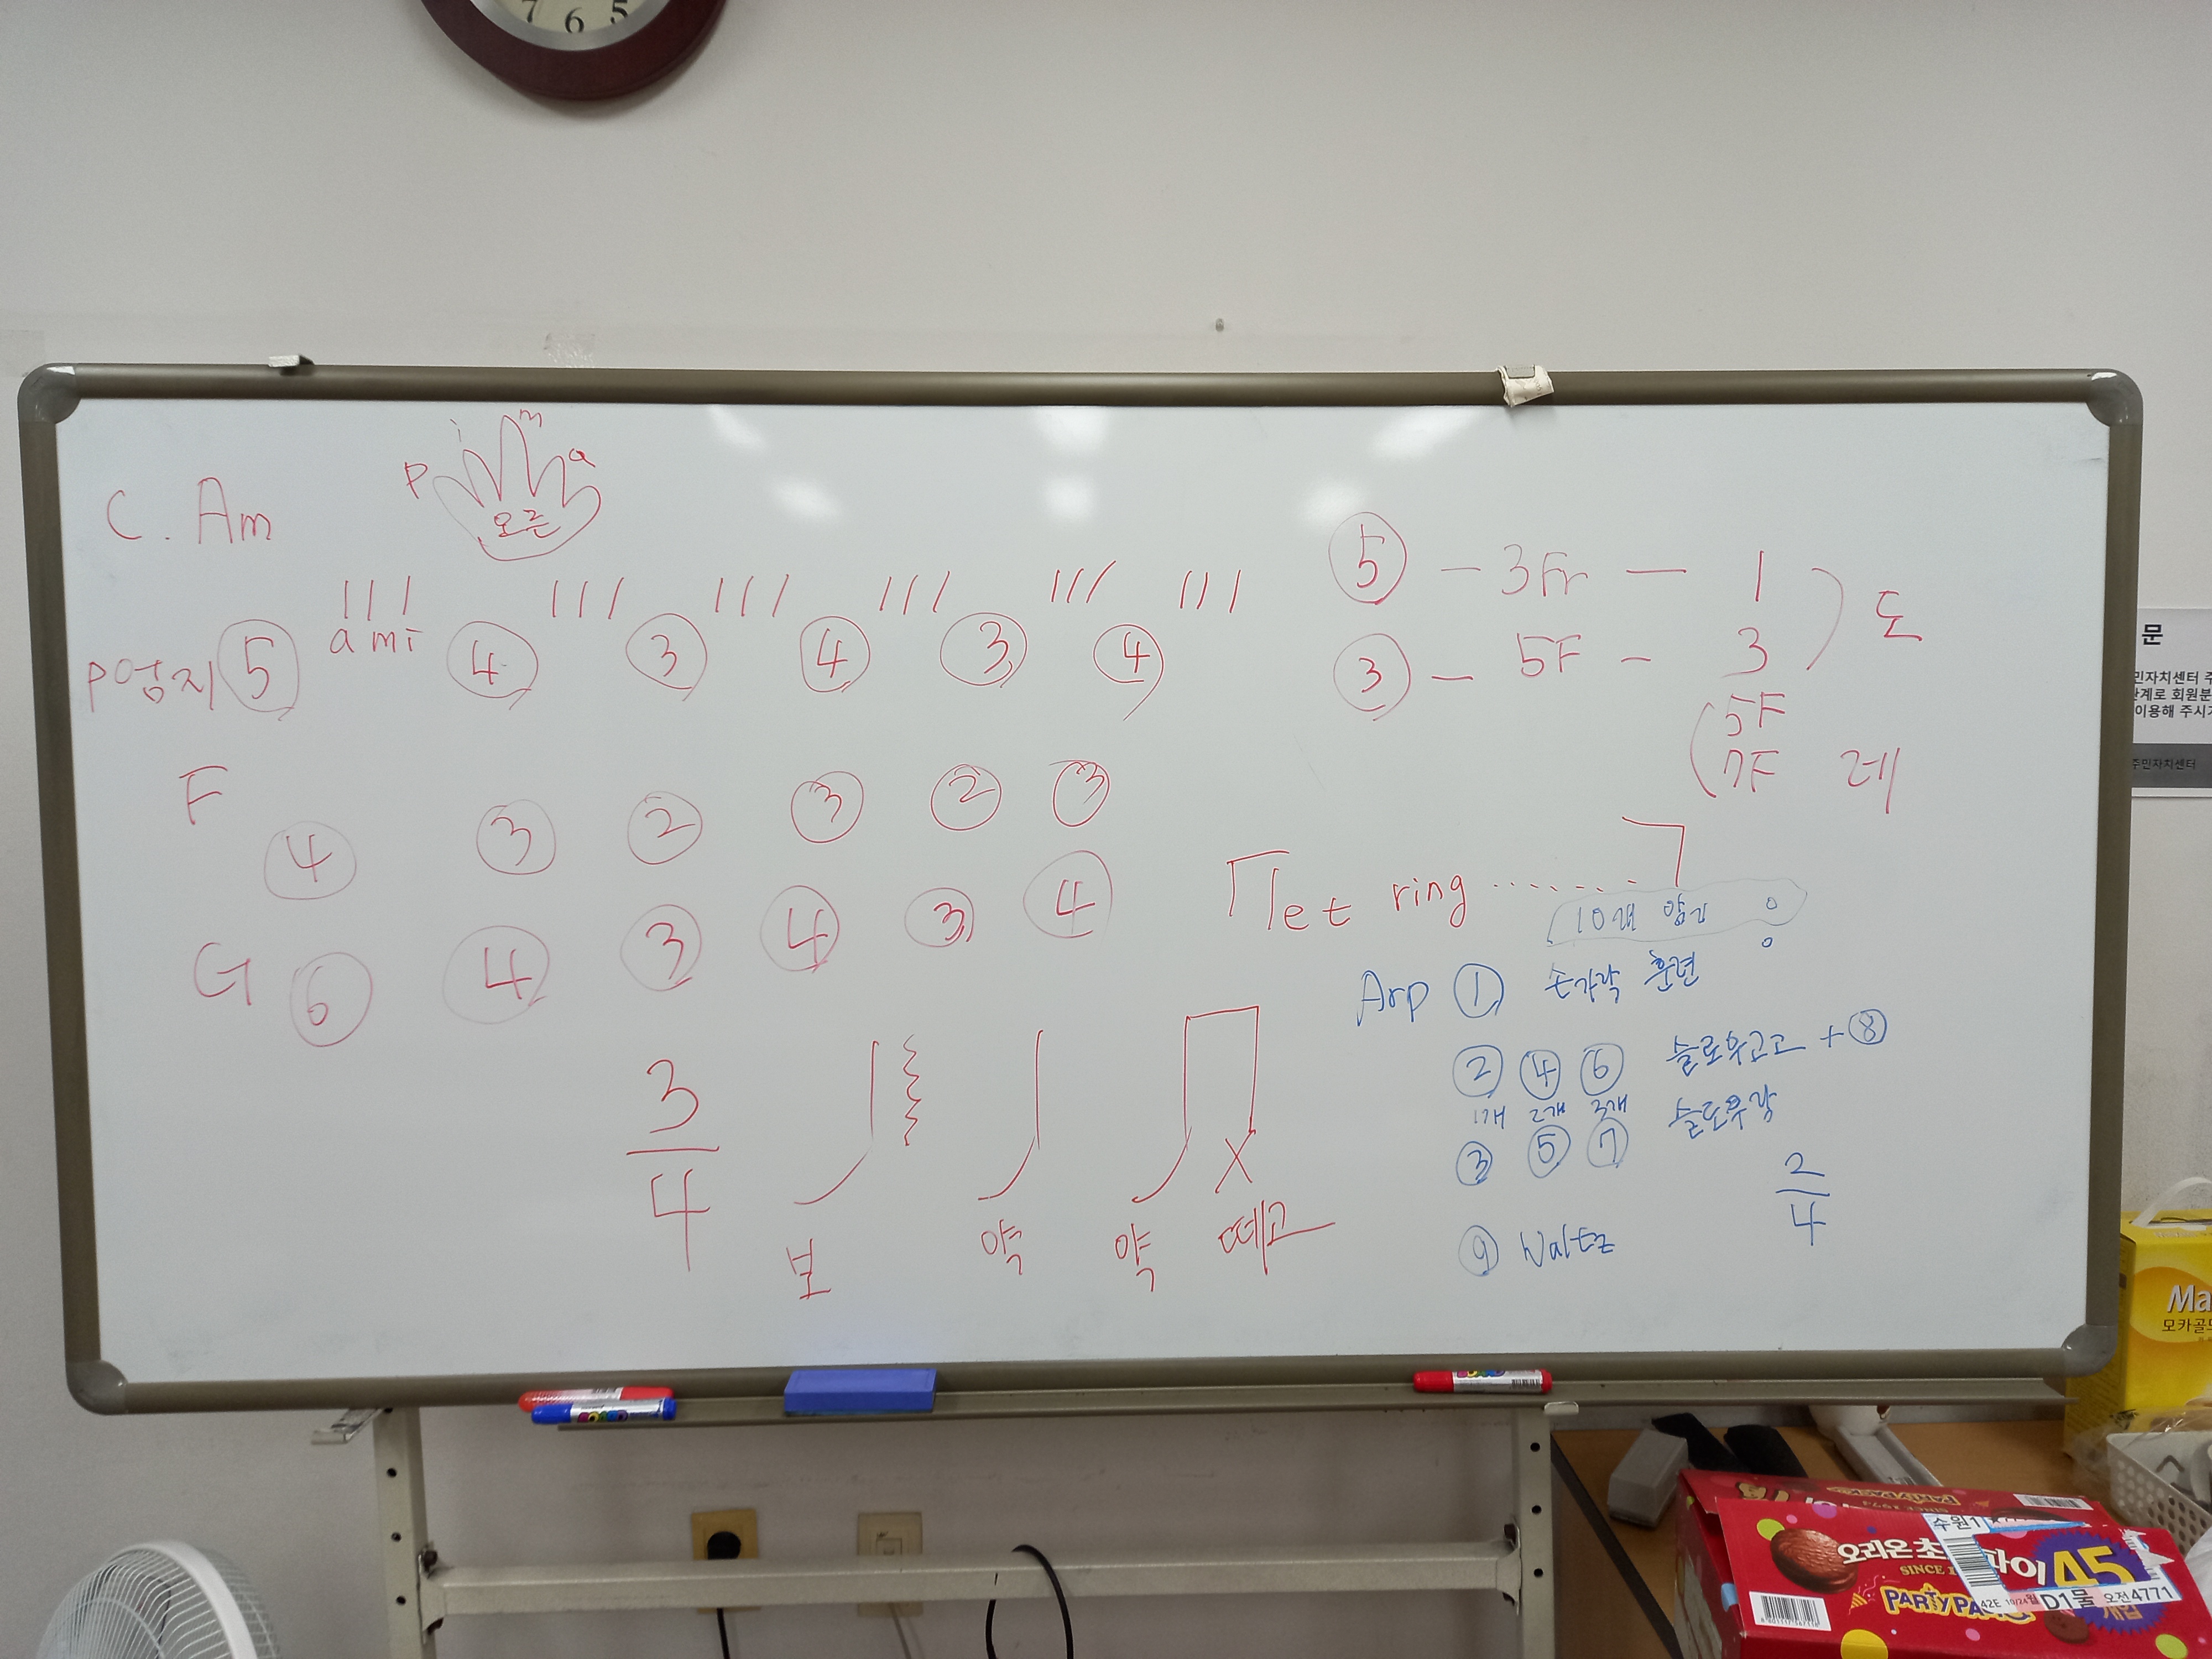 7 6 5
i m
p a
오른
C . Am
a m i
p엄지 ⑤ ④ ③ ④ ③ ④
F
④ ③ ② ③ ② ③
G ⑥ ④ ③ ④ ③ ④
3/4
보 약 약 떼고
⑤ - 3Fr - 1
③ - 5F - 3
도
5F
7F 레
let ring .......
10개
Arp ① 손가락 훈련
② ④ ⑥ 슬로우고고 + ⑧
1개 2개 3개
③ ⑤ ⑦ 슬로우락
2/4
⑨ Waltz
문
민자치센터 주
관계로 회원분
이용해 주시기
주민자치센터
Ma
모카골드
SINCE 1974
수원1
오리온 초 파이 45
SINCE 1
PARTY PACK
개입
42E 10/24 D1물 오전4771